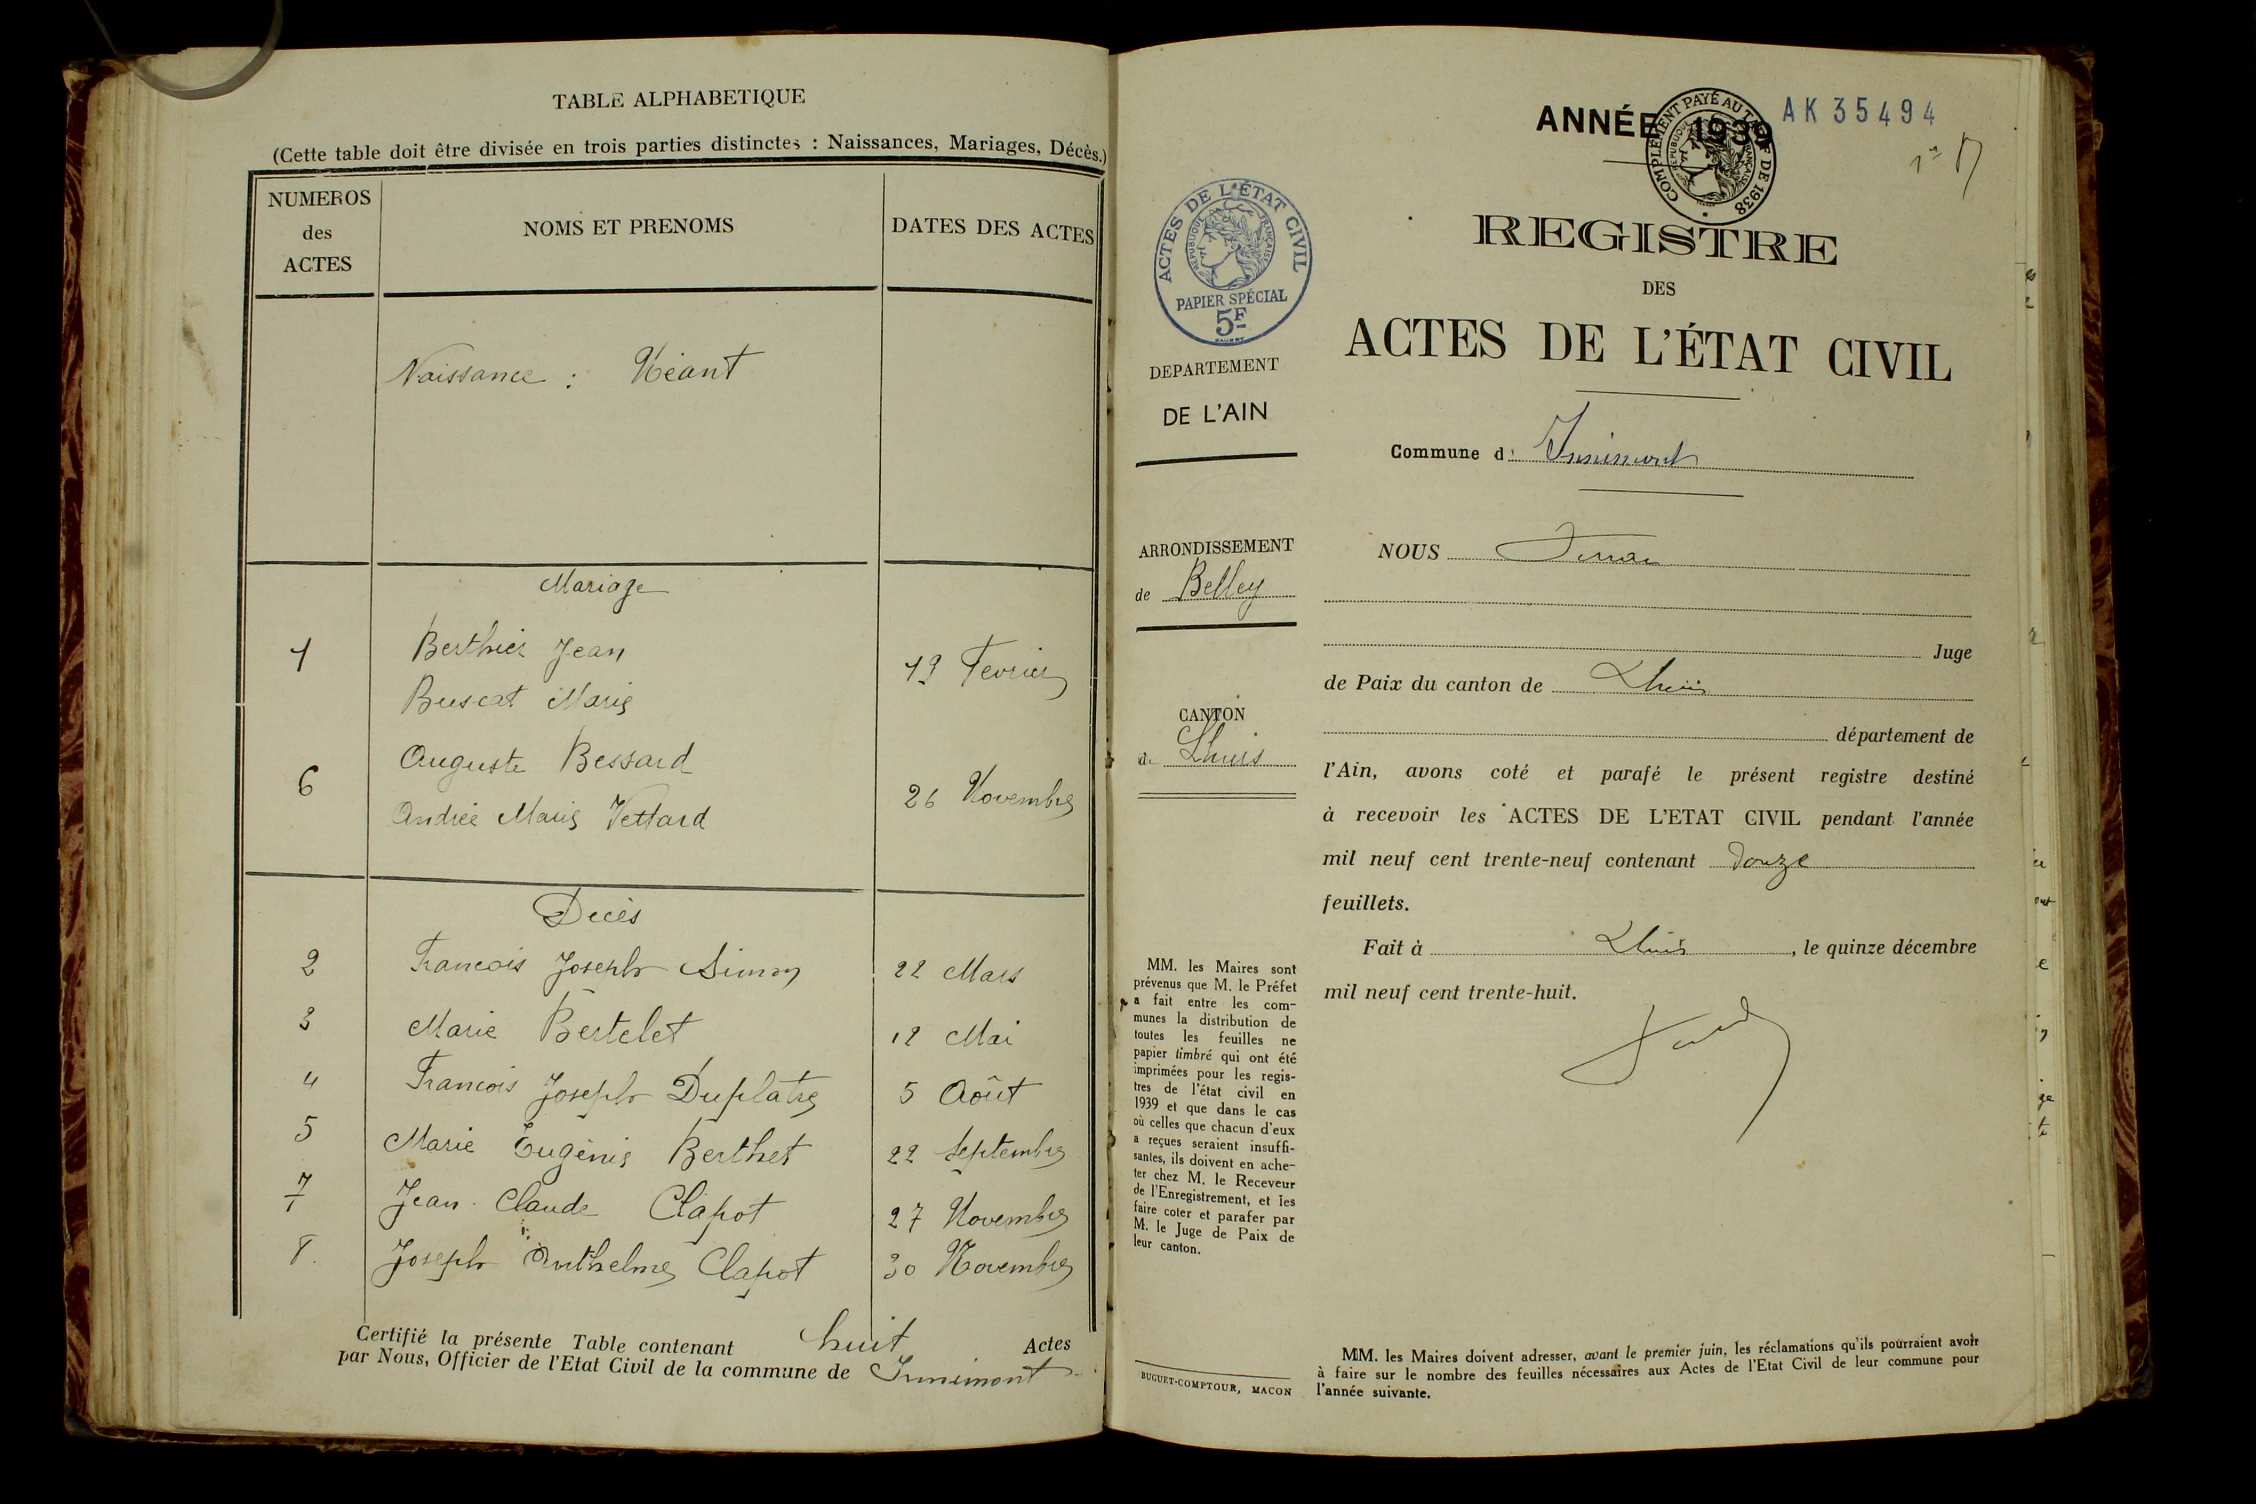 TABLE ALPHABETIQUE
(Cette table doit être divisée en trois parties distinctes : Naissances, Mariages, Décès.)
NUMEROS
des
ACTES
NOMS ET PRENOMS
DATES DES ACTES
Naissance : Néant
Mariage
1 Berthier Jean
19 Fevrier
Buscat Marie
Auguste Bessard
6
26 Novembre
Andrée Marie Vettard
Decès
2 Francois Joseph Simon 22 Mars
3 Marie Bertelet 12 Mai
4 Francois Joseph Duplatre 5 Août
5 Marie Eugènie Berthet 22 Septembre
7 Jean Claude Clapot 27 Novembre
8. Joseph Anthelme Clapot 30 Novembre
Certifié la présente Table contenant huit Actes
par Nous, Officier de l'Etat Civil de la commune de Innimont
ANNÉE 1939
COMPLÉMENT PAYÉ AU TARIF DE 1938
RÉPUBLIQUE FRANÇAISE
AK 35494
ACTES DE L'ÉTAT CIVIL
RÉPUBLIQUE FRANÇAISE
PAPIER SPÉCIAL
5F
DEPARTEMENT
DE L'AIN
ARRONDISSEMENT
de Belley
CANTON
de Lhuis
MM. les Maires sont
prévenus que M. le Préfet
a fait entre les com-
munes la distribution de
toutes les feuilles ne
papier timbré qui ont été
imprimées pour les regis-
tres de l'état civil en
1939 et que dans le cas
où celles que chacun d'eux
a reçues seraient insuffi-
santes, ils doivent en ache-
ter chez M. le Receveur
de l'Enregistrement, et les
faire coter et parafer par
M. le Juge de Paix de
leur canton.
BUGUET-COMPTOUR, MACON
REGISTRE
DES
ACTES DE L'ÉTAT CIVIL
Commune d' Innimont
NOUS
Juge
de Paix du canton de Lhuis
département de
l'Ain, avons coté et parafé le présent registre destiné
à recevoir les ACTES DE L'ETAT CIVIL pendant l'année
mil neuf cent trente-neuf contenant douze
feuillets.
Fait à Lhuis, le quinze décembre
mil neuf cent trente-huit.
MM. les Maires doivent adresser, avant le premier juin, les réclamations qu'ils pourraient avoir
à faire sur le nombre des feuilles nécessaires aux Actes de l'Etat Civil de leur commune pour
l'année suivante.